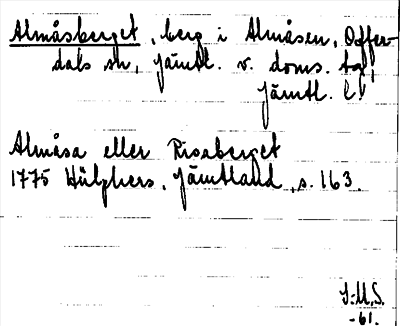 Almåsberget, berg i Almåsen, Offer-
dals sn, Jämtl. v. doms. tg,
Jämtl. l
Almåsa eller Risaberget
1775 Hülphers, Jämtland, s. 163.
I:M.S.
-61.